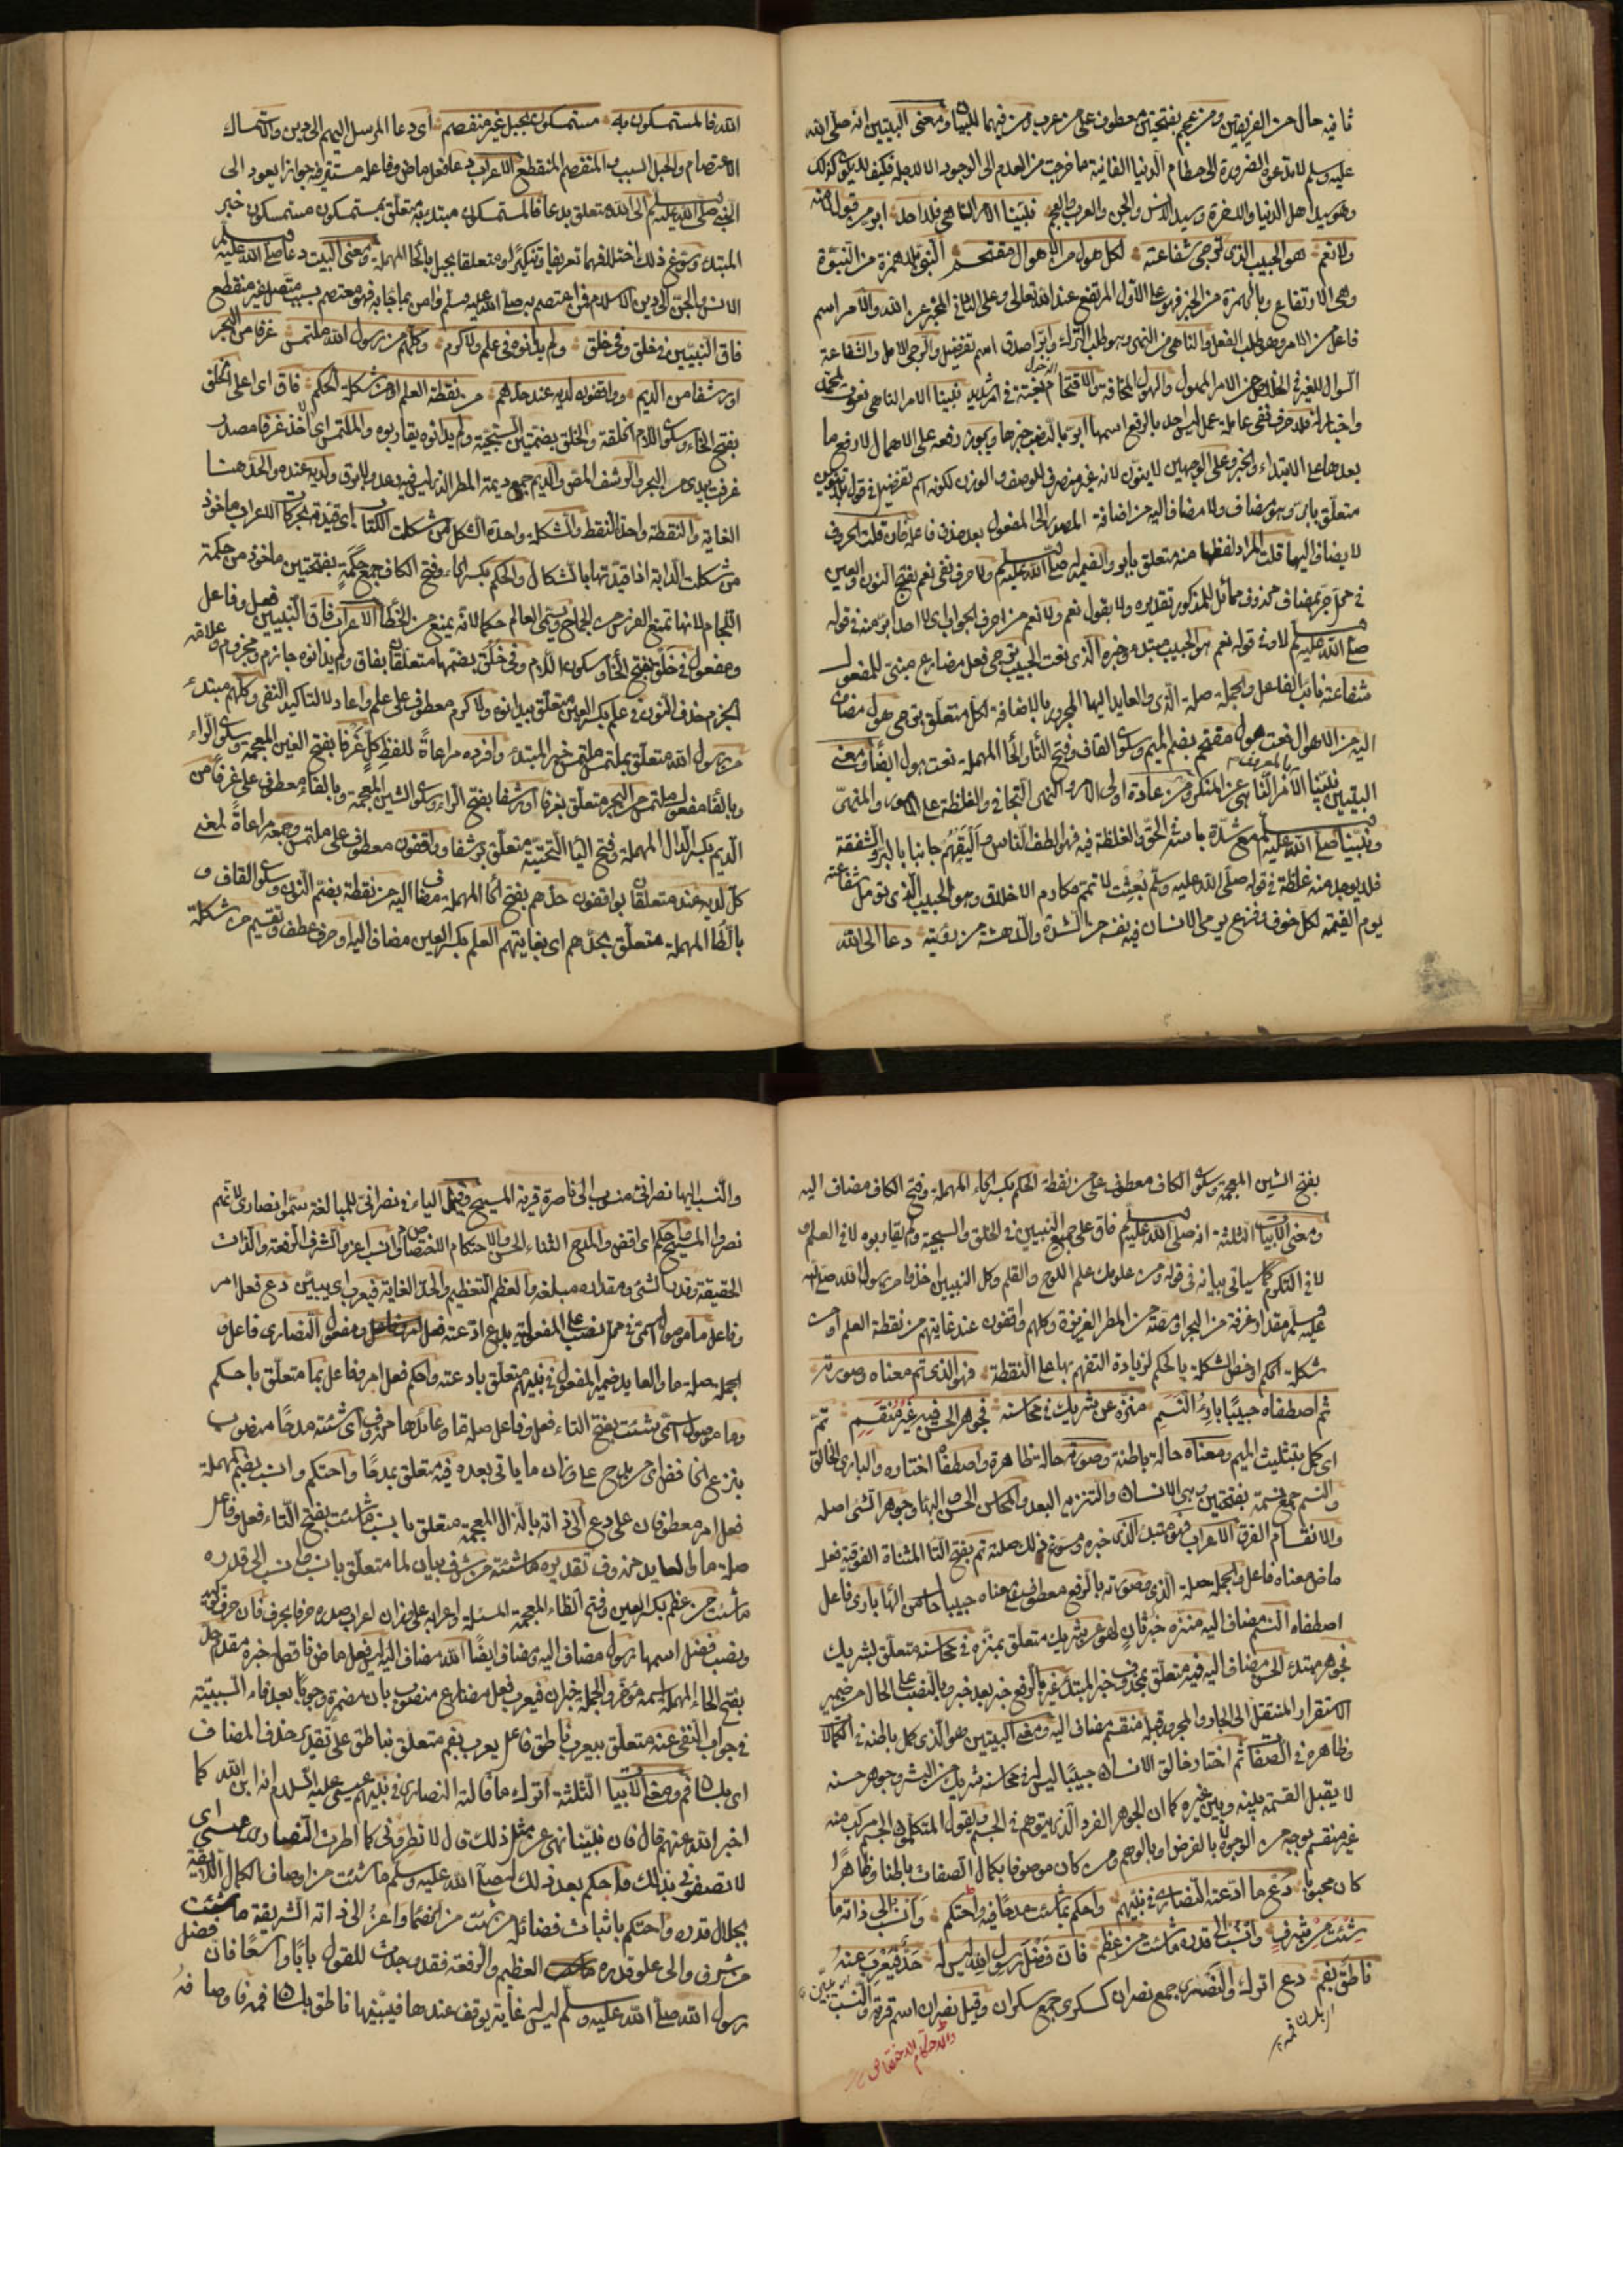 ثانيه حال من الفريقين ومن عجم بفتحتين معطوف على من عرب ومن فيهما للبيان ومعنى البيتين انه صلى الله
عليه وسلم لا تدعوه الضرورة الى حطام الدنيا الفانية ما خرجت من العدم الى الوجود الا لاجله فكيف لا يكون كذلك
وهو سيد اهل الدنيا والاخرة وسيد الانس والجن والعرب والعجم نبينا الآمر الناهي فلا احد ابر من قول لا منه
ولا نعم هو الحبيب الذي ترجى شفاعته لكل هول من الاهوال مقتحم النبي بلا همزة من النبوة
وهي الارتفاع وبالهمزة من الخبر فهو على الاول المرتفع عند الله تعالى وعلى الثاني المخبر عن الله والآمر اسم
فاعل من الامر وهو طلب الفعل والناهي من النهي وهو طلب الترك وابر اصدق اسم تفضيل والرجى الامل والشفاعة
السوال للغير في الخلاص من الامر المهول والهول المخافة والاقتحام الدخول بغتة في امر شديد نبينا الآمر الناهي نعوت لمحمد
واخبار له فلا حرف نفي عاملة عمل ليس احد بالرفع اسمها ابر بالنصب خبرها ويجوز رفعه على الاهمال لارفع ما
بعدها على الابتداء والخبر وعلى الوجهين لا ينون لانه غير منصرف للوصف والوزن لكونه اسم تفضيل في قول بلا تنوين
متعلق بابر وهو مضاف ولا مضاف اليه من اضافة المصدر الى المفعول بعد حذف فاعله فان قلت الحروف
لا يضاف اليها قلت المراد لفظها منه متعلق بابر والضمير له صلى الله عليه وسلم ولا حرف نفي نعم بفتح النون والعين
في محل جر بمضاف محذوف مماثل للمذكور تقديره ولا بقول نعم ولا نعم من احرف الجواب اى لا احد ابر منه في قوله
صلى الله عليه وسلم لا ولا في قوله نعم هو الحبيب مبتدء وخبره الذي نعت الحبيب ترجى فعل مضارع مبني للمفعول
شفاعته نائب الفاعل والجملة صلة الذي والعايد اليها المجرور بالاضافة لكل متعلق بترجى هول مضاف
اليه من الاهوال نعت هول مقتحم بضم الميم وسكون القاف وفتح التاء والحاء المهملة نعت هول ايضا ومعنى
بالمعروف
البيتين نبينا الآمر الناهي عن المنكر ومن عادة اولى الامر والنهي التجافي والغلظة على المامور والمنهى
ونبينا صلى الله عليه وسلم مع شدة باسه في الحق والغلظة فيه فهو الطف الناس واليقهم جانبا بالبر والشفقة
فلا يوجد منه غلظة في قوله صلى الله عليه وسلم بعثت لاتمم مكارم الاخلاق وهو الحبيب الذي نومل شفاعته
يوم القيمة لكل خوف وفزع يرمى الانسان فيه نفسه من الشدة والدهشة من رؤيته دعا الى الله
الله فالمستمسكون به مستمسكون بحبل غير منفصم اى دعا المرسل اليهم الى دين والاستمساك
الاعتصام والحبل السبب والمنفصم المنقطع الاعراب دعا فعل ماض وفاعله مستتر فيه جوازا يعود الى
النبي صلى الله عليه وسلم الى الله متعلق بدعا فالمستمسكون مبتدء به متعلق بمستمسكون مستمسكون خبر
المبتدء وسوغ ذلك اختلافهما تعريفا وتنكيرا ومتعلقا بحبل بالحاء المهملة ومعنى البيت دعا صلى الله عليه وسلم
الانس والجن الى دين الاسلام فمن اعتصم به صلى الله عليه وسلم وامن بما جاء به فهو معتصم بسبب متصل غير منقطع
فاق النبيين في خلق وفي خلق ولم يدانوه في علم ولا كرم وكلهم من رسول الله ملتمس غرفا من البحر
او رشفا من الديم وواقفون لديه عند حدهم من نقطة العلم او من شكلة الحكم فاق اى اعلى الخلق
بفتح الخاء وسكون اللام الخلقة والخلق بضمتين السجية ولم يدانوه يقاربوه والملتمس اى الآخذ غرفا مصدر
غرفت بيدى من البحر والرشف المص والديم جمع ديمة المطر الذي ليس فيه رعد ولا برق ولديه عنده والحد هنا
الغاية والنقطة واحدة النقط والشكلة واحدة الشكل من شكلت الكتاب اى قيدته بحركات الاعراب ماخوذ
من شكلت الدابة اذا قيدتها بالشكال والحكم بكسر الحاء وفتح الكاف جمع حكمة بفتحتين ماخوذ من حكمة
اللجام لانها تمنع الفرس من الجماح ويسمى العالم حكيما لانه يمنع من الخطأ الاعراب فاق النبيين فعل وفاعل
ومفعول في خلق بفتح الخاء وسكون اللام وفي خلق بضمهما متعلقان بفاق ولم يدانوه جازم ومجزوم وعلامة
الجزم حذف النون في علم بكسر العين متعلق بيدانوه ولا كرم معطوف على علم واعاد لا لتاكيد النفى وكلهم مبتدء
من رسول الله متعلق بملتمس ملتمس خبر المبتدء وافرده مراعاة للفظ كل غرفا بفتح الغين المعجمة وسكون الراء
وبالفاء مفعول ملتمس من البحر متعلق بغرفا او رشفا بفتح الراء وسكون الشين المعجمة وبالفاء معطوف على غرفا من
الديم بكسر الدال المهملة وفتح الياء التحتية متعلق برشفا وواقفون معطوف على ملتمس وجمعه مراعاة لمعنى
كل لديه عند متعلقان بواقفون حدهم بفتح الحاء المهملة مضاف اليه من نقطة بضم النون وسكون القاف و
بالطاء المهملة متعلق بحدهم اى بغايتهم العلم بكسر العين مضاف اليه او حرف عطف وتقسيم من شكلة
بفتح الشين المعجمة وسكون الكاف معطوف على من نقطة الحكم بكسر الحاء المهملة وفتح الكاف مضاف اليه
ومعنى الابيات الثلثة انه صلى الله عليه وسلم فاق على جميع النبيين في الخلق والسجية ولم يقاربوه لا في العلم و
لا في الكرم كما سياتي بيانه في قوله ومن علومك علم اللوح والقلم وكل النبيين اخذوا من رسول الله صلى الله
عليه وسلم مقدار غرفة من البحر او مصة من المطر الغزيرة وكلهم واقفون عند غايتهم من نقطة العلم او من
شكلة الحكم او خص الشكلة بالحكم لزيادة التفهم بها على النقطة فهو الذي تم معناه وصورته
ثم اصطفاه حبيبا بارئ النسم منزه عن شريك في محاسنه فجوهر الحسن فيه غير منقسم تم
اى كمل بتثليث الميم ومعناه حالة باطنة وصورته حالة ظاهرة واصطفاه اختاره والبارى الخالق
والنسم جمع نسمة بفتحتين وهي الانسان والتنزيه البعد والمحاسن الحسن البهاء وجوهر الشئ اصله
والانقسام الفرق الاعراب فهو مبتدء الذي خبره وسوغ ذلك صلته تم بفتح التاء المثناة الفوقية فعل
ماض معناه فاعله والجملة صلة الذي وصورته بالرفع معطوف على معناه حبيبا حال من الهاء بارى فاعل
اصطفاه النسم مضاف اليه منزه خبر ثان لهو عن شريك متعلق بمنزه في محاسنه متعلق بشريك
فجوهر مبتدء الحسن مضاف اليه فيه متعلق بمحذوف خبر المبتدء غير بالرفع خبر بعد خبر وبالنصب على الحال من ضمير
الاستقرار المنتقل الى الجار والمجرور قبله منقسم مضاف اليه ومعنى البيتين هو الذي كمل باطنه في الكمالات
وظاهره في الصفات ثم اختاره خالق الانسان حبيبا ليس له في محاسنه شريك من البشر وجوهر حسنه
لا يقبل القسمة بينه وبين غيره كما ان الجوهر الفرد الذي يتوهم في الجسم ويقول المتكلمون الجسم مركب منه
غير منقسم بوجه من الوجوه لا بالفرض ولا بالوهم ومن كان موصوفا بكمال الصفات باطنا وظاهرا
كان محبوبا دع ما ادعته النصارى في نبيهم واحكم بما شئت مدحا فيه واحتكم وانسب الى ذاته ما
شئت من شرف وانسب الى قدره ما شئت من عظم فان فضل رسول الله ليس له حد فيعرب عنه
ناطق بفم دع اترك والنصارى جمع نصران كسكرى جمع سكران وقيل نصران اسم قرية والنسب
والاحتكام الاختصاص
والنسب اليها نصراني منسوب الى ناصرة قرية المسيح وقيل الياء في نصراني للمبالغة سموا نصارى لانهم
نصروا المسيح واحكم اى اقض والمدح الثناء الحسن والاحتكام الاختصام وانسب اعز والشرف الرفعة والذات
الحقيقة وقدر الشئ مقداره مبلغه والعظم التعظيم والحد الغاية فيعرب اى يبين دع فعل امر
وفاعل ما موصول اسمى في محل نصب على المفعولية بدع ادعته فعل ومفعول النصارى فاعل و
الجملة صلة ما والعايد ضمير المفعول في نبيهم متعلق بادعته واحكم فعل امر وفاعل بما متعلق باحكم
وما موصول اسمى شئت بفتح التاء فعل وفاعل صلة ما وعائدها محذوف اى شئته مدحا منصوب
بنزع الخافض اى من مدح على وزان ما ياتى بعده فيه متعلق بمدحا واحتكم وانسب بضم المهملة
فعل امر معطوفان على دع الى ذاته بالذال المعجمة متعلق بانسب ما شئت بفتح التاء فعل وفاعل
صلة ما والعايد محذوف تقديره ما شئته من شرف بيان لما متعلق بانسب وانسب الى قدره
ما شئت من عظم بكسر العين وفتح الظاء المعجمة المسئلة واعرابه على وزان اعراب صدره حرفا بحرف فان حرف توكيد
ونصب فضل اسمها رسول مضاف اليه ومضاف ايضا الله مضاف اليه ليس فعل ماض ناقص له خبره مقدم حد
بفتح الحاء المهملة اسمه مؤخر والجملة خبر ان فيعرب فعل مضارع منصوب بان مضمرة وجوبا بعد فاء السببية
في جواب النفى عنه متعلق بيعرب ناطق فاعل يعرب بفم متعلق بناطق على تقدير حذف المضاف
اى بلسان فم ومعنى الابيات الثلثة اترك ما قالته النصارى في نبيهم عيسى عليه السلام انه ابن الله كما
اخبر الله عنهم قال فان نبينا نهى عن مثل ذلك قال لا تطرونى كما اطرت النصارى عيسى اى
لا تصفونى بذلك فاحكم بعد ذلك له صلى الله عليه وسلم ما شئت من اوصاف الكمال اللائقة
بجلال قدره واحتكم باثبات فضائله من شئت من الخصماء واعز الى ذاته الشريفة ما شئت
من شرف والى علو قدره العظيم والرفعة فقد وجدت للقول بابا واسعا فان فضل
رسول الله صلى الله عليه وسلم ليس له غاية يوقف عندها فيبينها ناطق بلسان فمه فاوصافه